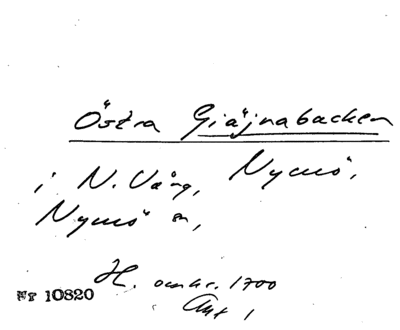 Östra Giäjnabacken
i N. Vång, Nymö,
Nymö sn,
H. omkr. 1700
Akt 1
Nr 10820